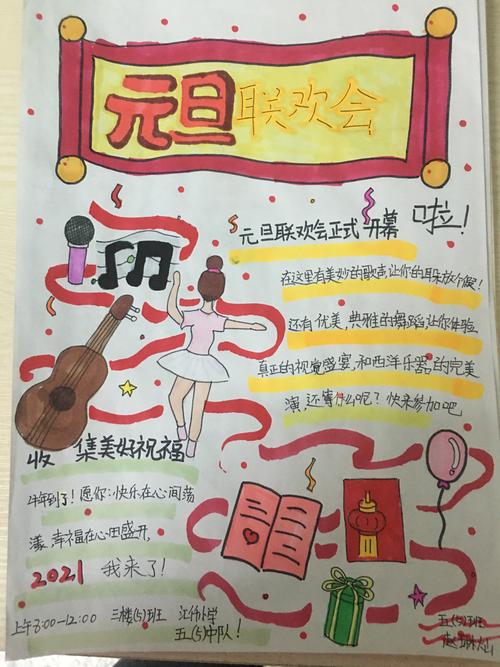 元旦联欢会
元旦联欢会正式开幕啦!
在这里有美妙的歌声,让你的耳朵放个假!
还有优美,典雅的舞蹈,让你体验
真正的视觉盛宴,和西洋乐器的完美
演,还等什么呢?快来参加吧
收集美好祝福
牛年到了!愿你:快乐在心间荡
漾,幸福在心田盛开,
2021 我来了!
上午8:00-12:00 三楼(5)班
五(5)中队!
五(5)班